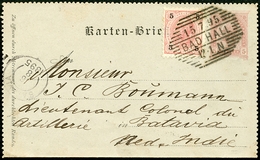 Karten-Brief
5
15.7.95
BAD HALL
Monsieur
J. C. Boumann
Lieutenant Colonel du
Artillerie Batavia
Ned. Indië